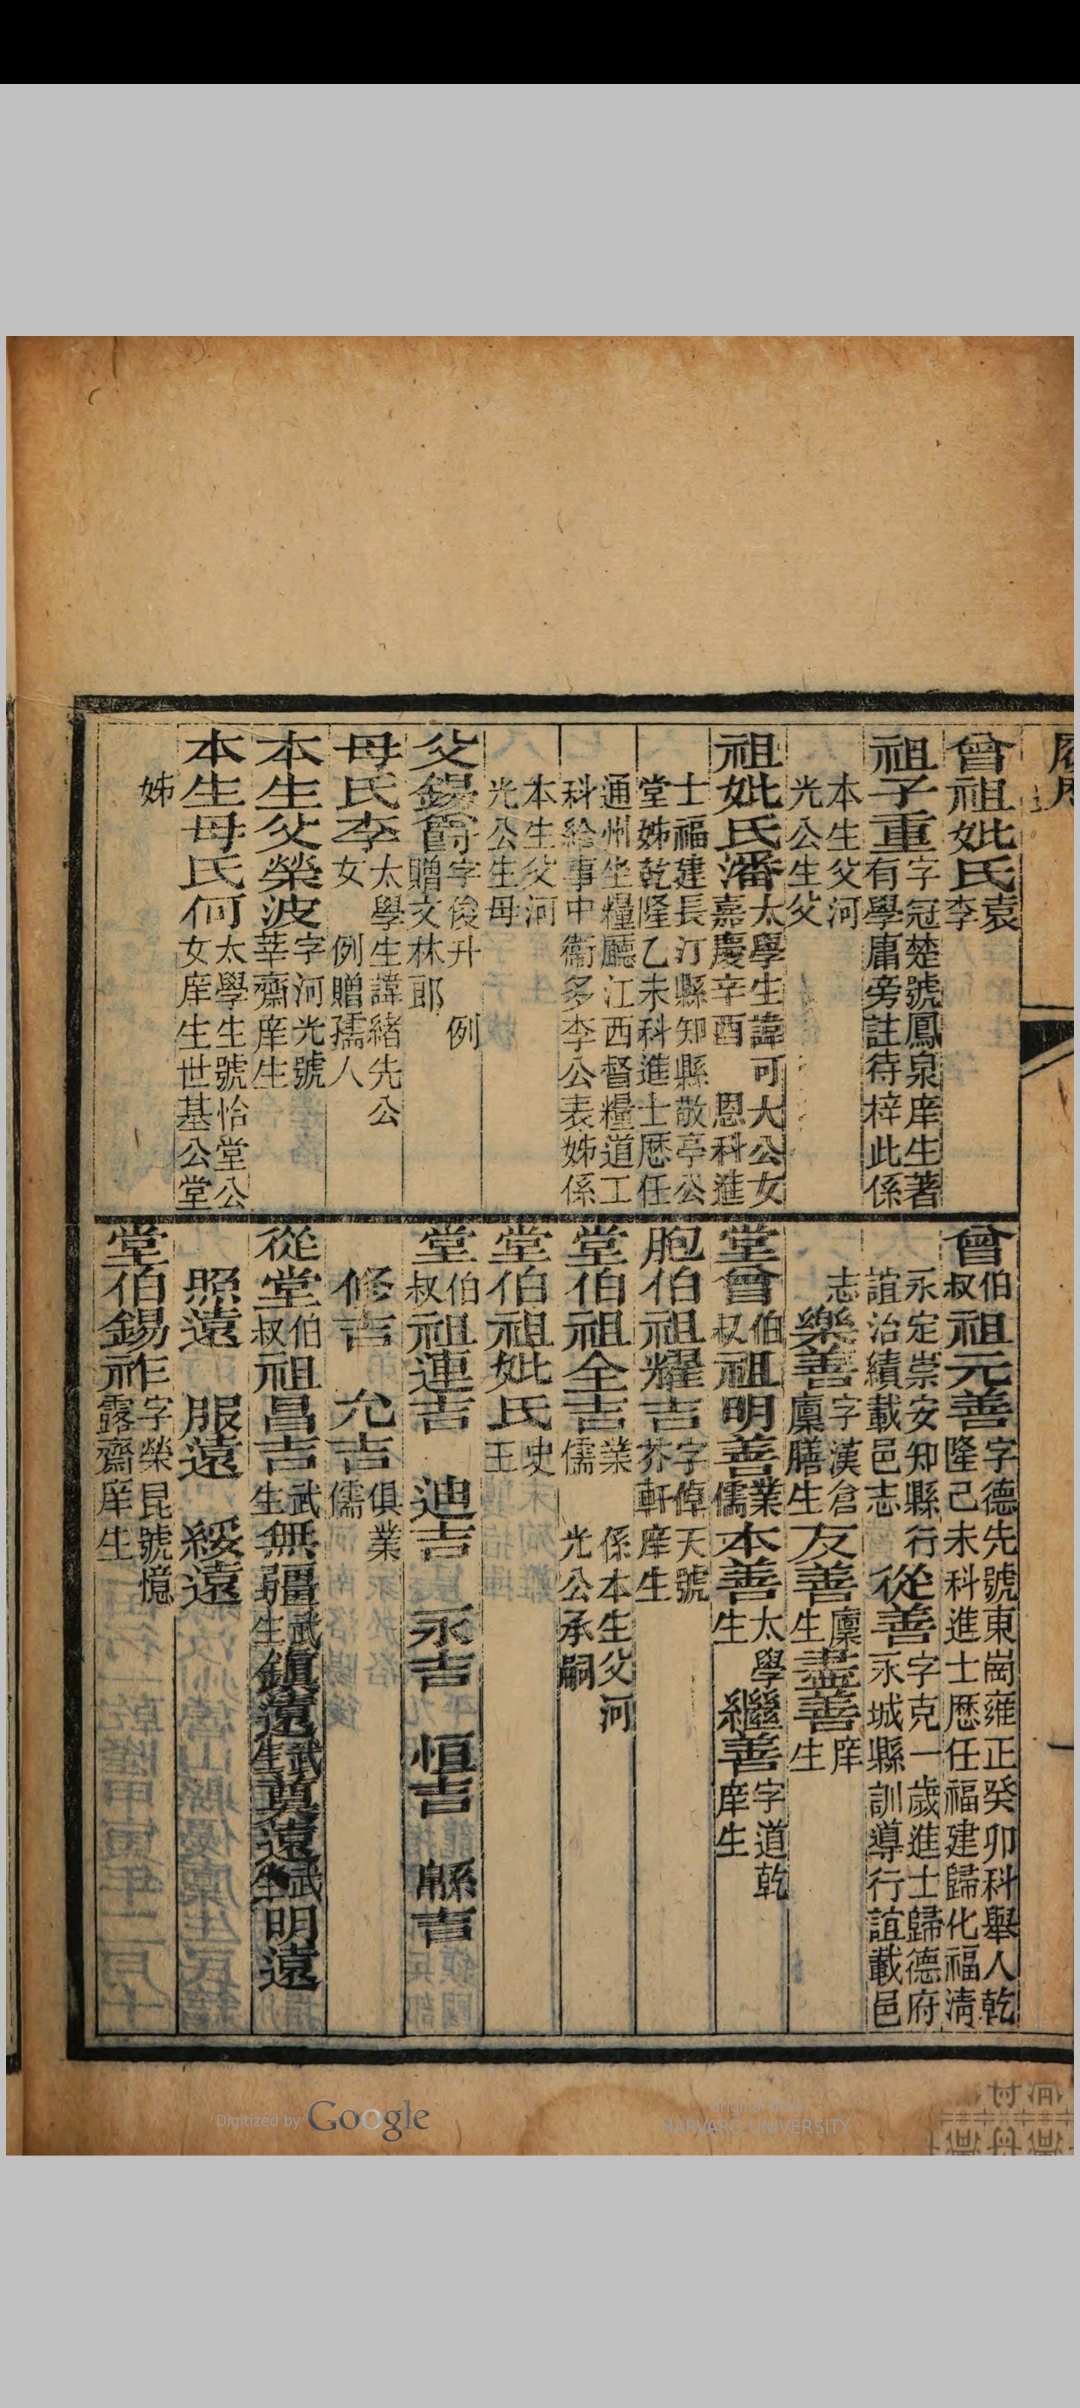 曾祖妣氏袁李
祖子重字冠楚號鳳泉庠生著
有學庸旁註待梓此係
本生父河
光公生父
祖妣氏潘太學生諱可大公女
嘉慶辛酉 恩科進
士福建長汀縣知縣敬亭公
堂姊乾隆乙未科進士歷任
通州坐糧廳江西督糧道工
科給事中衞多李公表姊係
本生父河
光公生母
父錫爵字俊升 例
贈文林郎
母氏李太學生諱緒先公
女 例贈孺人
本生父榮波字河光號
莘齋庠生
本生母氏何太學生號怡堂公
女庠生世基公堂
姊
曾伯叔祖元善字德先號東崗雍正癸卯科舉人乾
隆己未科進士歷任福建歸化福清
永定崇安知縣行
誼治績載邑志
從善字克一歲進士歸德府
永城縣訓導行誼載邑
志
樂善字漢倉
廩膳生
友善廩生
盡善庠生
堂曾伯叔祖明善業儒
本善太學生
繼善字道乾
庠生
胞伯祖耀吉字倬天號
芥軒庠生
堂伯祖全吉業儒
係本生父河
光公承嗣
堂伯祖妣氏史王
堂伯叔祖連吉 迪吉 永吉 恒吉 緜吉
修吉 允吉俱業儒
從堂伯叔祖昌吉武生無疆武生鎮遠武生奠遠武生明遠
照遠 服遠 綏遠
堂伯錫祚字榮昆號憶
露齋庠生
Digitized by Google
Original from
HARVARD UNIVERSITY